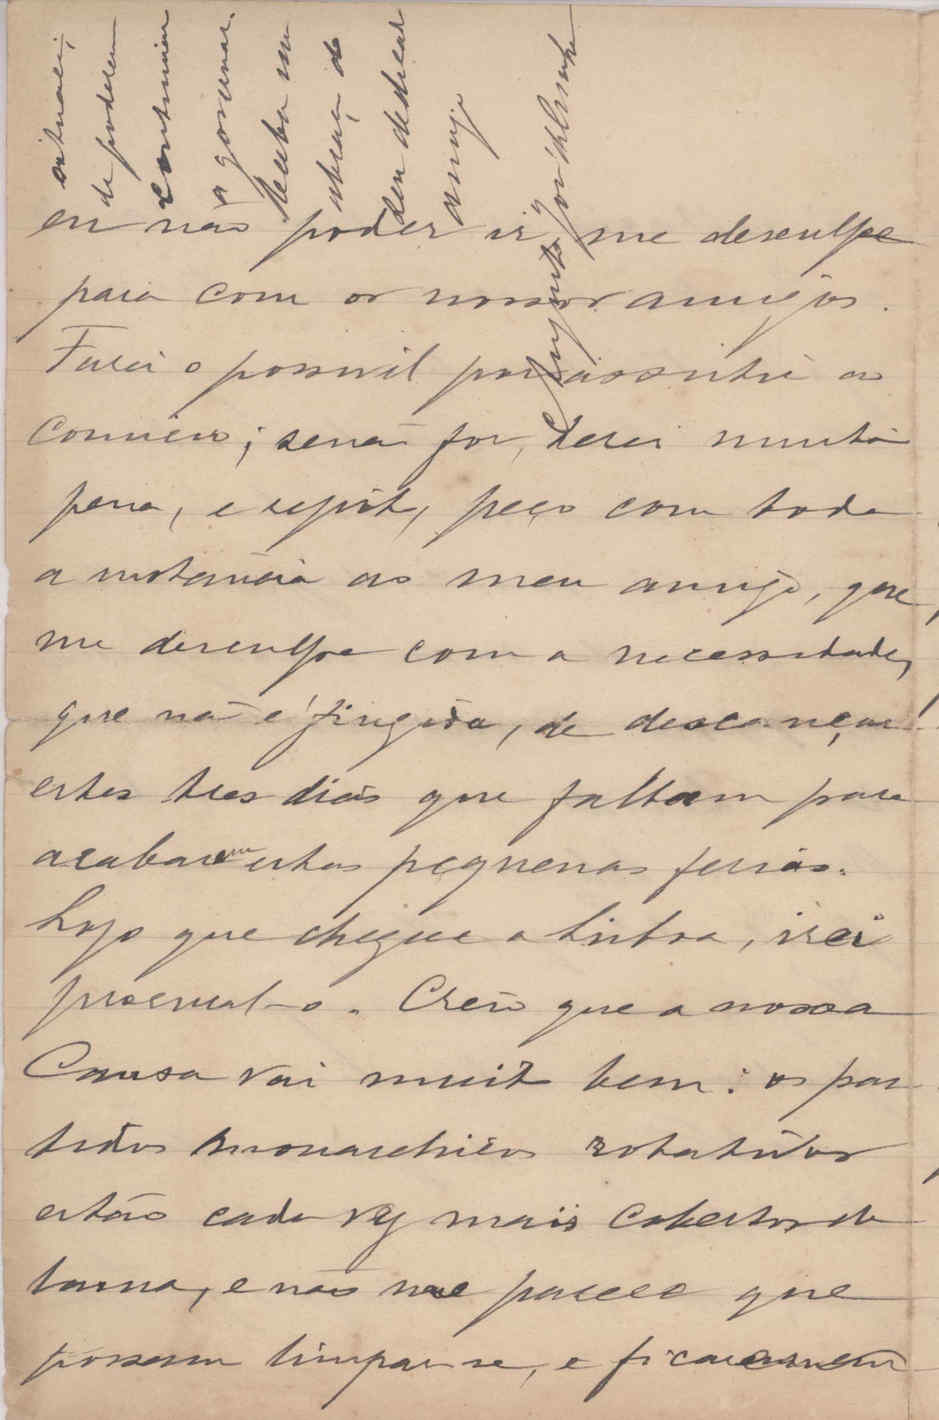 eu não poder ir, me desculpe
para com os nossos amigos.
Farei o possivel por assistir ao
comicio; se não for, terei muita
pena, e repito, peço com toda
a instancia ao meu amigo, que
me desculpe com a necessidade,
que não é fingida, de descançar
estes tres dias que faltam para
acabarem estas pequenas ferias.
Logo que chegue a Lisboa, irei
procural-o. Creio que a nossa
Causa vai muito bem: os par
tidos monarchicos rotativos
estão cada vez mais cobertos de
lama, e não me parece que
possam limpar-se, e ficarem em
situação,
de poderem
continuar
a governar.
Receba um
abraço do
seu dedicado
amigo